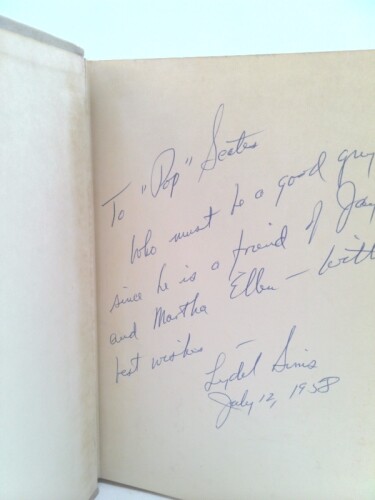 To "Pop" Scates
Who must be a good guy
since he is a friend of Jay
and Martha Ellen — With
best wishes —
Lydel Sims
July 12, 1958